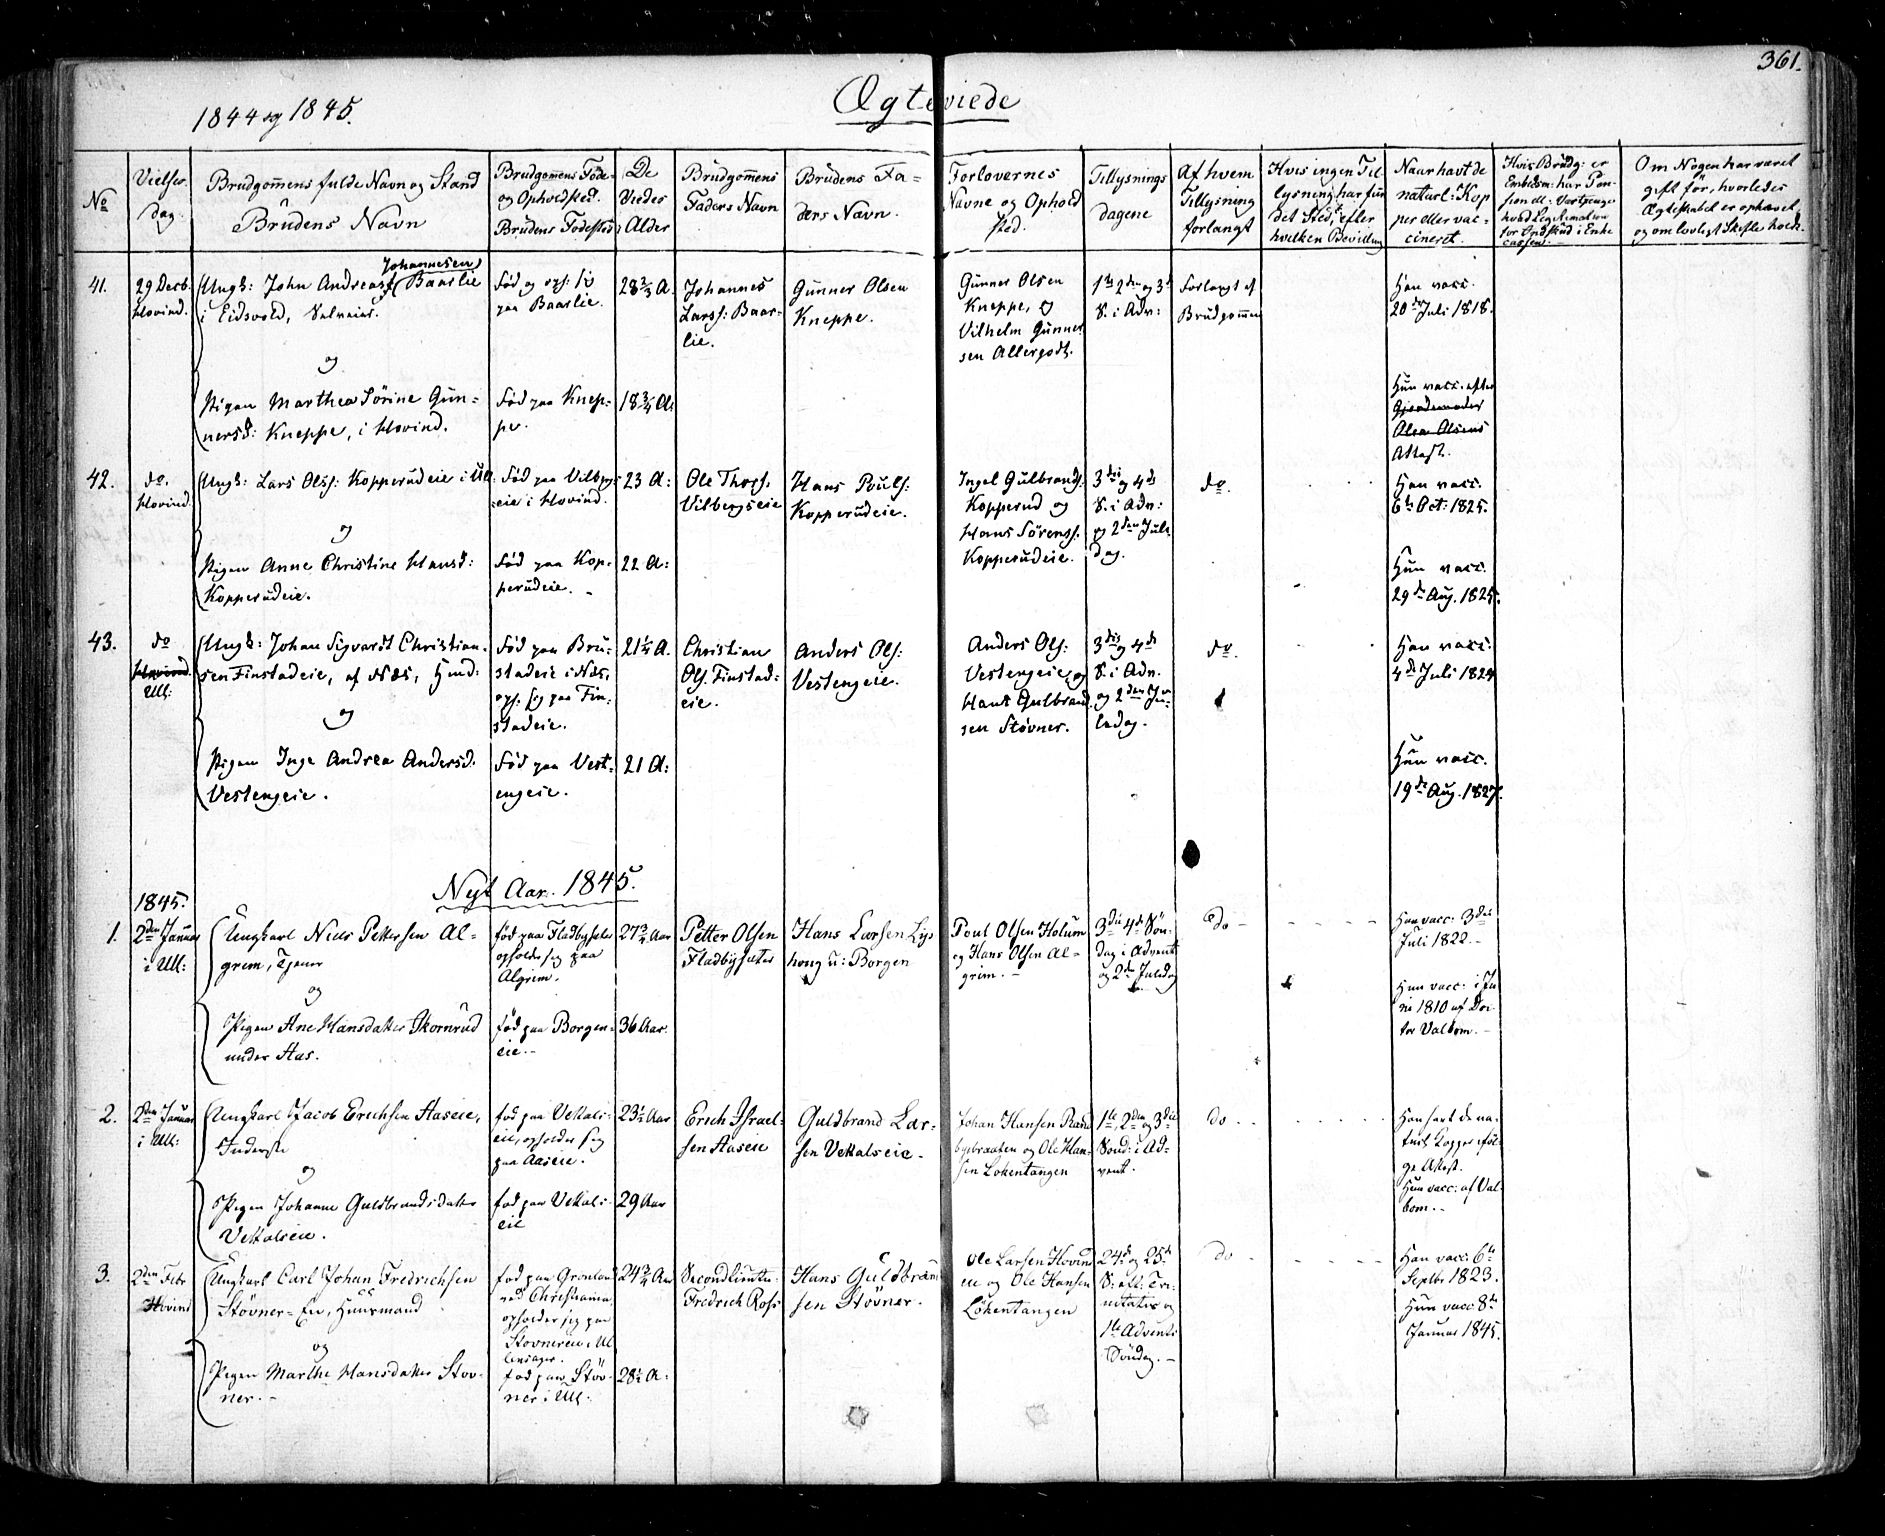 361.
1844 og 1845.
Ægteviede
No
Vielses Dag.
Brudgommens fulde Navn og Stand
Brudens Navn
Brudgomens Føde- og Opholdsted.
Brudens Fødested
De Viedes Alder
Brudgommens Faders Navn
Brudens Faders Navn.
Forlovernes Navne og Opholdsted.
Tillysnings dagene
Af hvem Tillysning forlangt
Hvis ingen Tillysning har fundet Sted, efter hvilken Bevilling
Naar havt de naturl: Kopper eller vaccineret.
Hvis Brudg: er
Om Nogen har været gift før, hvorledes Ægteskabet er ophævet, og om lovligt Skifte holdt.
41.
29 Decb.
Hovind.
Ungk: John Andreas Johannesen Baarlie
i Eidsvold, Selveier.
og
Pigen Marthea Sørine Gun-
nersd: Kneppe, i Hovind.
Fød og oph: sig
paa Baarlie.
Fød paa Knep-
pe.
28 2/3 A.
18 3/4 A:
Johannes
Larss: Baar-
lie.
Gunner Olsen
Kneppe.
Gunner Olsen
Kneppe, og
Vilhelm Gunner
sen Allergodt.
1ste 2den og 3die
S. i Adv:
Forlangt af
Brudgommen
Han vacc.
20de Juli 1818.
Hun vacc. efter
Gjordemoder
Olea Olsens
Attest.
42.
do.
Hovind.
Ungk: Lars Olss: Kopperudeie i Ull:
og
Pigen Anne Christine Hansd:
Kopperudeie.
Fød paa Vilberg-
eie i Hovind.
Fød paa Kop-
perudeie.
23 A:
22 A:
Ole Thors.
Vilbergseie
Hans Pouls:
Kopperudeie.
Ingel Gulbrands:
Kopperud og
Hans Sørenss.
Kopperudeie.
3die og 4de
S. i Adv:
og 2den Jule
dag.
do.
Han vacc.
6te Oct: 1825.
Hun vacc.
29de Aug. 1825.
43.
do
Hovind
Ull:
Ungk: Johan Sigvardt Christian-
sen Finstadeie, af Næs,
og
Pigen Inge Andrea Andersd.
Vestengeie.
Fød paa Bru-
stadeie i Næs,
oph. sig paa Fin-
stadeie.
Fød paa Vest-
engeie.
21 1/4 A.
21 A:
Christian
Ols. Finstad-
eie.
Anders Ols:
Vestengeie.
Anders Ols:
Vestengeie, og
Hans Gulbrand
sen Støvner.
3die og 4de
S. i Adv.
og 2den Ju-
ledag.
do.
Han vacc.
4de Juli 1824
Hun vacc.
19de Aug. 1827.
Nyt Aar. 1845.
1845.
1.
2den Januar
i Ull:
Ungkarl Niels Pettersen Al-
grim, Tjener
og
Pigen Ane Hansdatter Skornrud
under Aas.
fød paa Fladbysæter
opholder sig paa
Algrim.
fød paa Borgen-
eie.
27 3/4 Aar
36 Aar.
Petter Olsen
Fladbysæter
Hans Larsen Lys
houg u: Borgen
Poul Olsen Holum
og Hans Olsen Al-
grim.
3die 4de Søn-
dag i Advent
og 2den Juledag
do
Han vacc: 3die
Juli 1822.
Hun vacc: i Ju
ni 1810 af Doc-
tor Valbom.
2.
2den Januar
i Ull:
Ungkarl Jacob Erichsen Aaseie,
Inderste
og
Pigen Johanne Guldbrandsdatter
Vekalseie.
fød paa Vekals-
eie, opholder sig
paa Aaseie.
fød paa Vekals-
eie
23 1/2 Aar
29 Aar
Erich Israel-
sen Aaseie
Guldbrand Lar-
sen Vekalseie.
Johan Hansen Rand
bybraaten og Ole Han-
sen Løkentangen
1ste, 2den og 3die
Sønd: i Ad-
vent.
do
Han havt de na-
turl. Kopper iføl-
ge Attest.
Hun vacc: af Val-
bom.
3.
2den Febr
Hovind
Ungkarl Carl Johan Fredrichsen
Støvner-Eie, Huusmand
og
Pigen Marthe Hansdatter Støv-
ner.
fød paa Grønland
ved Christiania,
opholder sig paa
Støvnereie i Ul
lensager.
fød paa Støv-
ner i Ull:
24 3/4 Aar
28 1/2 A:
Secondlieute-
Fredrich Ross
Hans Guldbrand
sen Støvner.
Ole Larsen Hovind
eie og Ole Hansen
Løkentangen
24de og 25de
S: eft: Tri-
nitatis og
1ste Advents
Søndag.
do
Han vacc: 6te
Septbr 1823.
Hun vacc: 8de
Januar 1845.